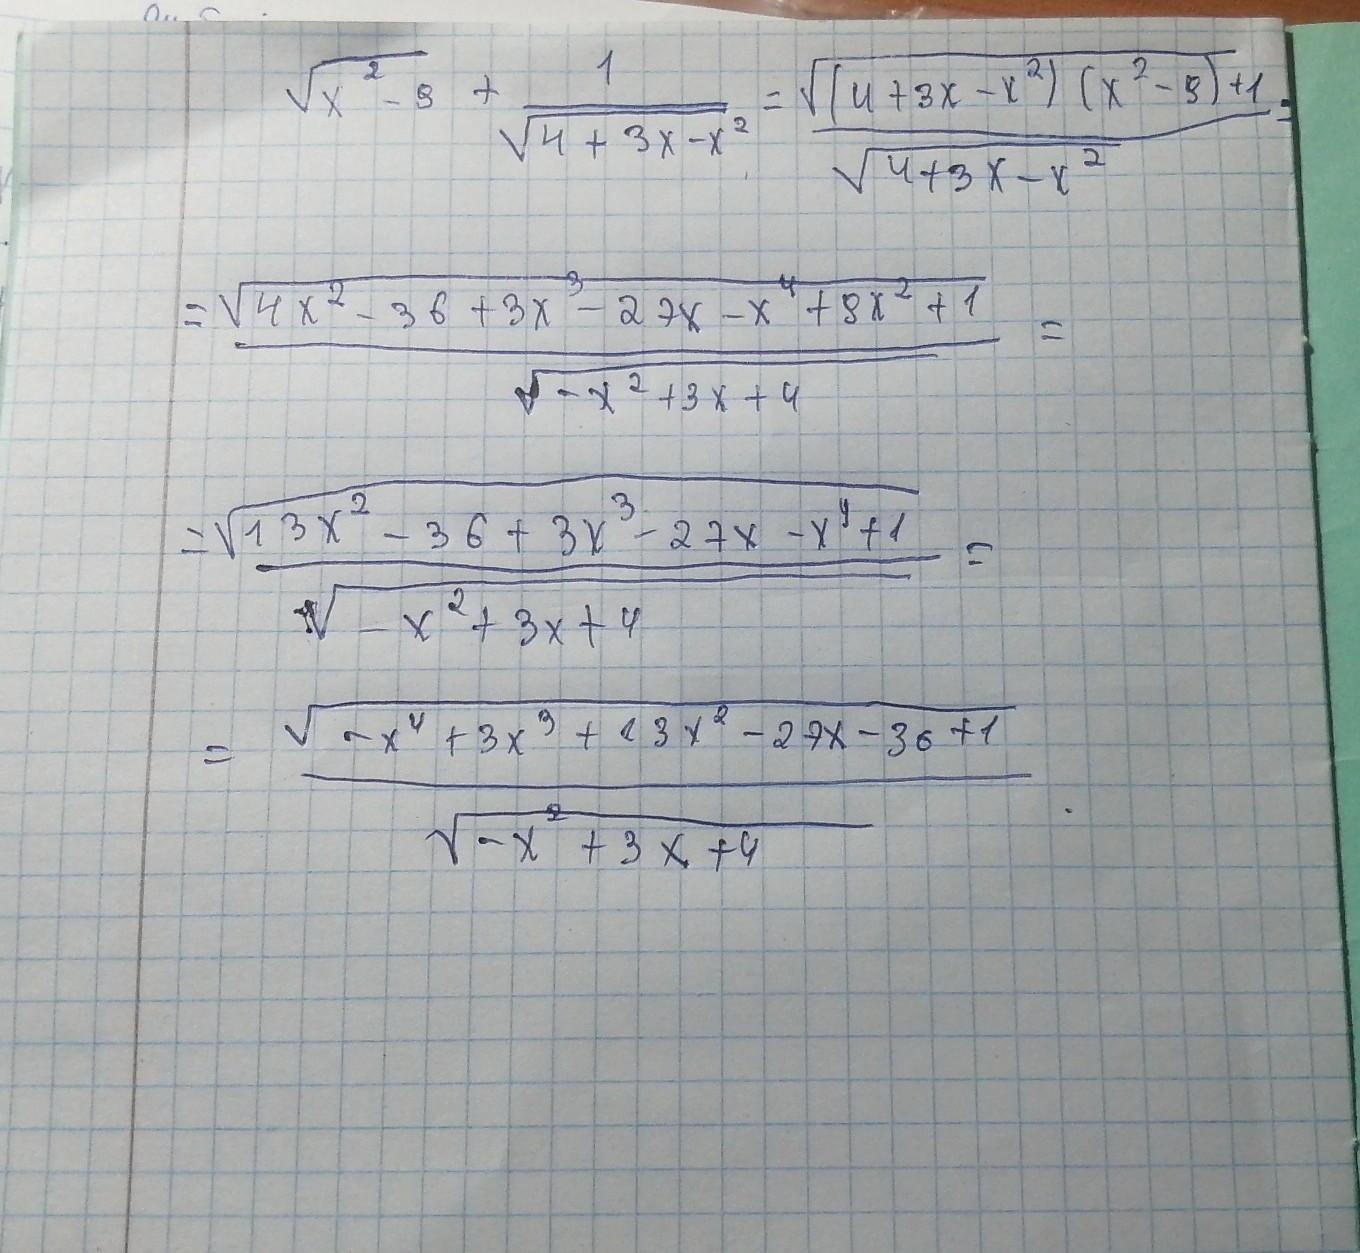 √(x² - 9) + 1/√(4 + 3x - x²) = √((4 + 3x - x²)(x² - 9) + 1)/√(4 + 3x - x²) =
= √(4x² - 36 + 3x³ - 27x - x⁴ + 9x² + 1)/√(-x² + 3x + 4) =
= √(13x² - 36 + 3x³ - 27x - x⁴ + 1)/√(-x² + 3x + 4) =
= √(-x⁴ + 3x³ + 13x² - 27x - 36 + 1)/√(-x² + 3x + 4)